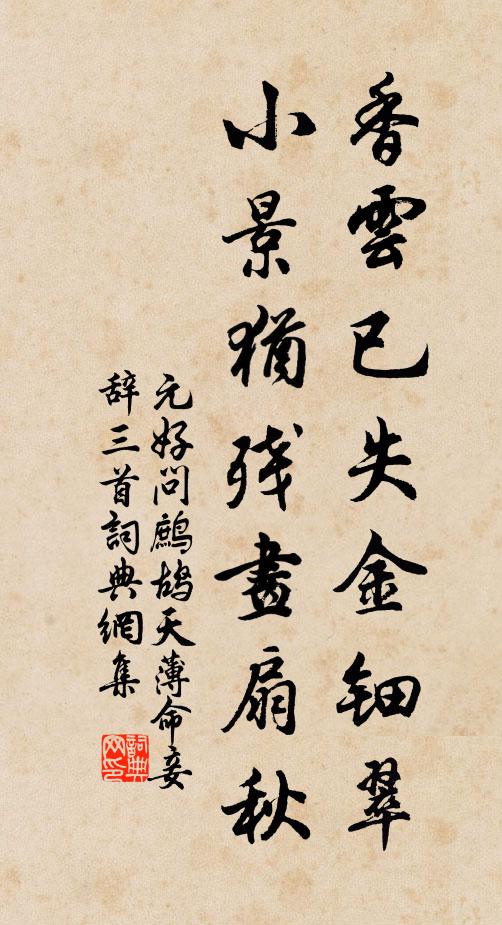 香雲已失金鈿翠
小景猶殘畫扇秋
元好问鷓鴣天薄命妾
辞三首詞典網集
詞典网印